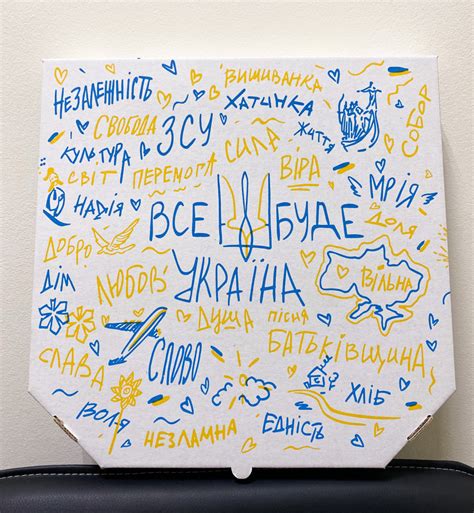 НЕЗАЛЕЖНІСТЬ
ВИШИВАНКА
ХАТИНКА
СВОБОДА
ЗСУ
СОБОР
ЖИТТЯ
КУЛЬТУРА
СИЛА
ВІРА
СВІТ
ПЕРЕМОГА
МРІЯ
НАДІЯ
ВСЕ БУДЕ
ДОЛЯ
ДОБРО
УКРАЇНА
ДІМ
ЛЮБОВ
ВІЛЬНА
ДУША
ПІСНЯ
БАТЬКІВЩИНА
СЛАВА
СЛОВО
ХЛІБ
ВОЛЯ
НЕЗЛАМНА
ЄДНІСТЬ